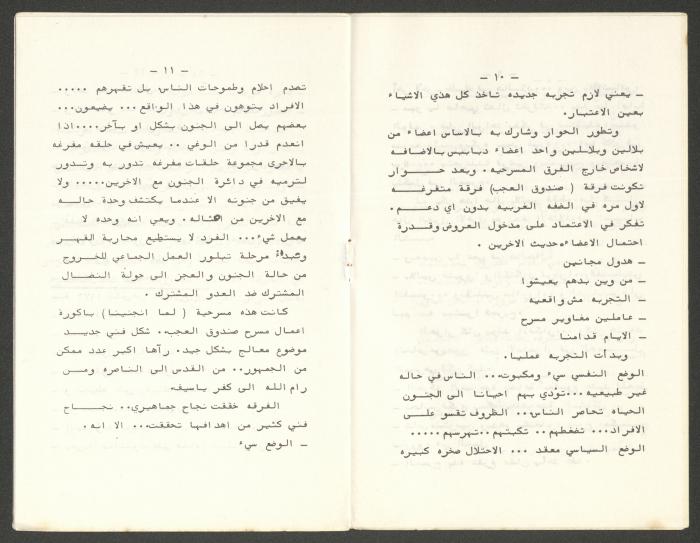 - ١٠ -
- يعني لازم تجربه جديده تاخذ كل هذي الاشياء
بعين الاعتبار.
وتطور الحوار وشارك به بالاساس اعضاء من
بلالين وبلالين واحد اعضاء دبابيس بالاضافه
لاشخاص خارج الفرق المسرحيه. وبعد حوار
تكونت فرقة ( صندوق العجب) فرقة متفرغه
لاول مره في الضفه الغربيه بدون اي دعم.
تفكر في الاعتماد على مدخول العروض وقدرة
احتمال الاعضاء، حديث الاخرين .
- هدول مجانين
- من وين بدهم يعيشوا
- التجربه مش واقعيه
- عاملين مغاوير مسرح
- الايام قدامنا
وبدأت التجربه عمليا.
الوضع النفسي سيء ومكبوت... الناس في حاله
غير طبيعيه...تؤدي بهم احيانا الى الجنون
الحياه تحاصر الناس.. الظروف تقسو على
الافراد... تضغطهم.. تكبتهم..تهرسهم.....
الوضع السياسي معقد ... الاحتلال صخره كبيره
- ١١ -
تصدم احلام وطموحات الناس بل تقهرهم .....
الافراد يتوهون في هذا الواقع... يضيعون...
بعضهم يصل الى الجنون بشكل او بآخر....اذا
انعدم قدرا من الوعي .. يعيش في حلقه مفرغه
بالاحرى مجموعة حلقات مفرغه تدور به وتدور
لترميه في دائرة الجنون مع الاخرين..... ولا
يفيق من جنونه الا عندما يكتشف وحدة حاله
مع الاخرين من امثاله. ويعي انه وحده لا
يعمل شيء... الفرد لا يستطيع محاربة القهر
وتبدأ مرحلة تبلور العمل الجماعي للخروج
من حالة الجنون والعجز الى حولة النضال
المشترك ضد العدو المشترك .
كانت هذه مسرحية ( لما انجنينا) باكورة
اعمال مسرح صندوق العجب.. شكل فني جديد
موضوع معالج بشكل جيد. رآها اكبر عدد ممكن
من الجمهور.. من القدس الى الناصره ومن
رام الله الى كفر ياسيف.
الفرقه حققت نجاح جماهيري.. نجاح
فني كثير من اهدافها تحققت... الا انه.
- الوضع سيء